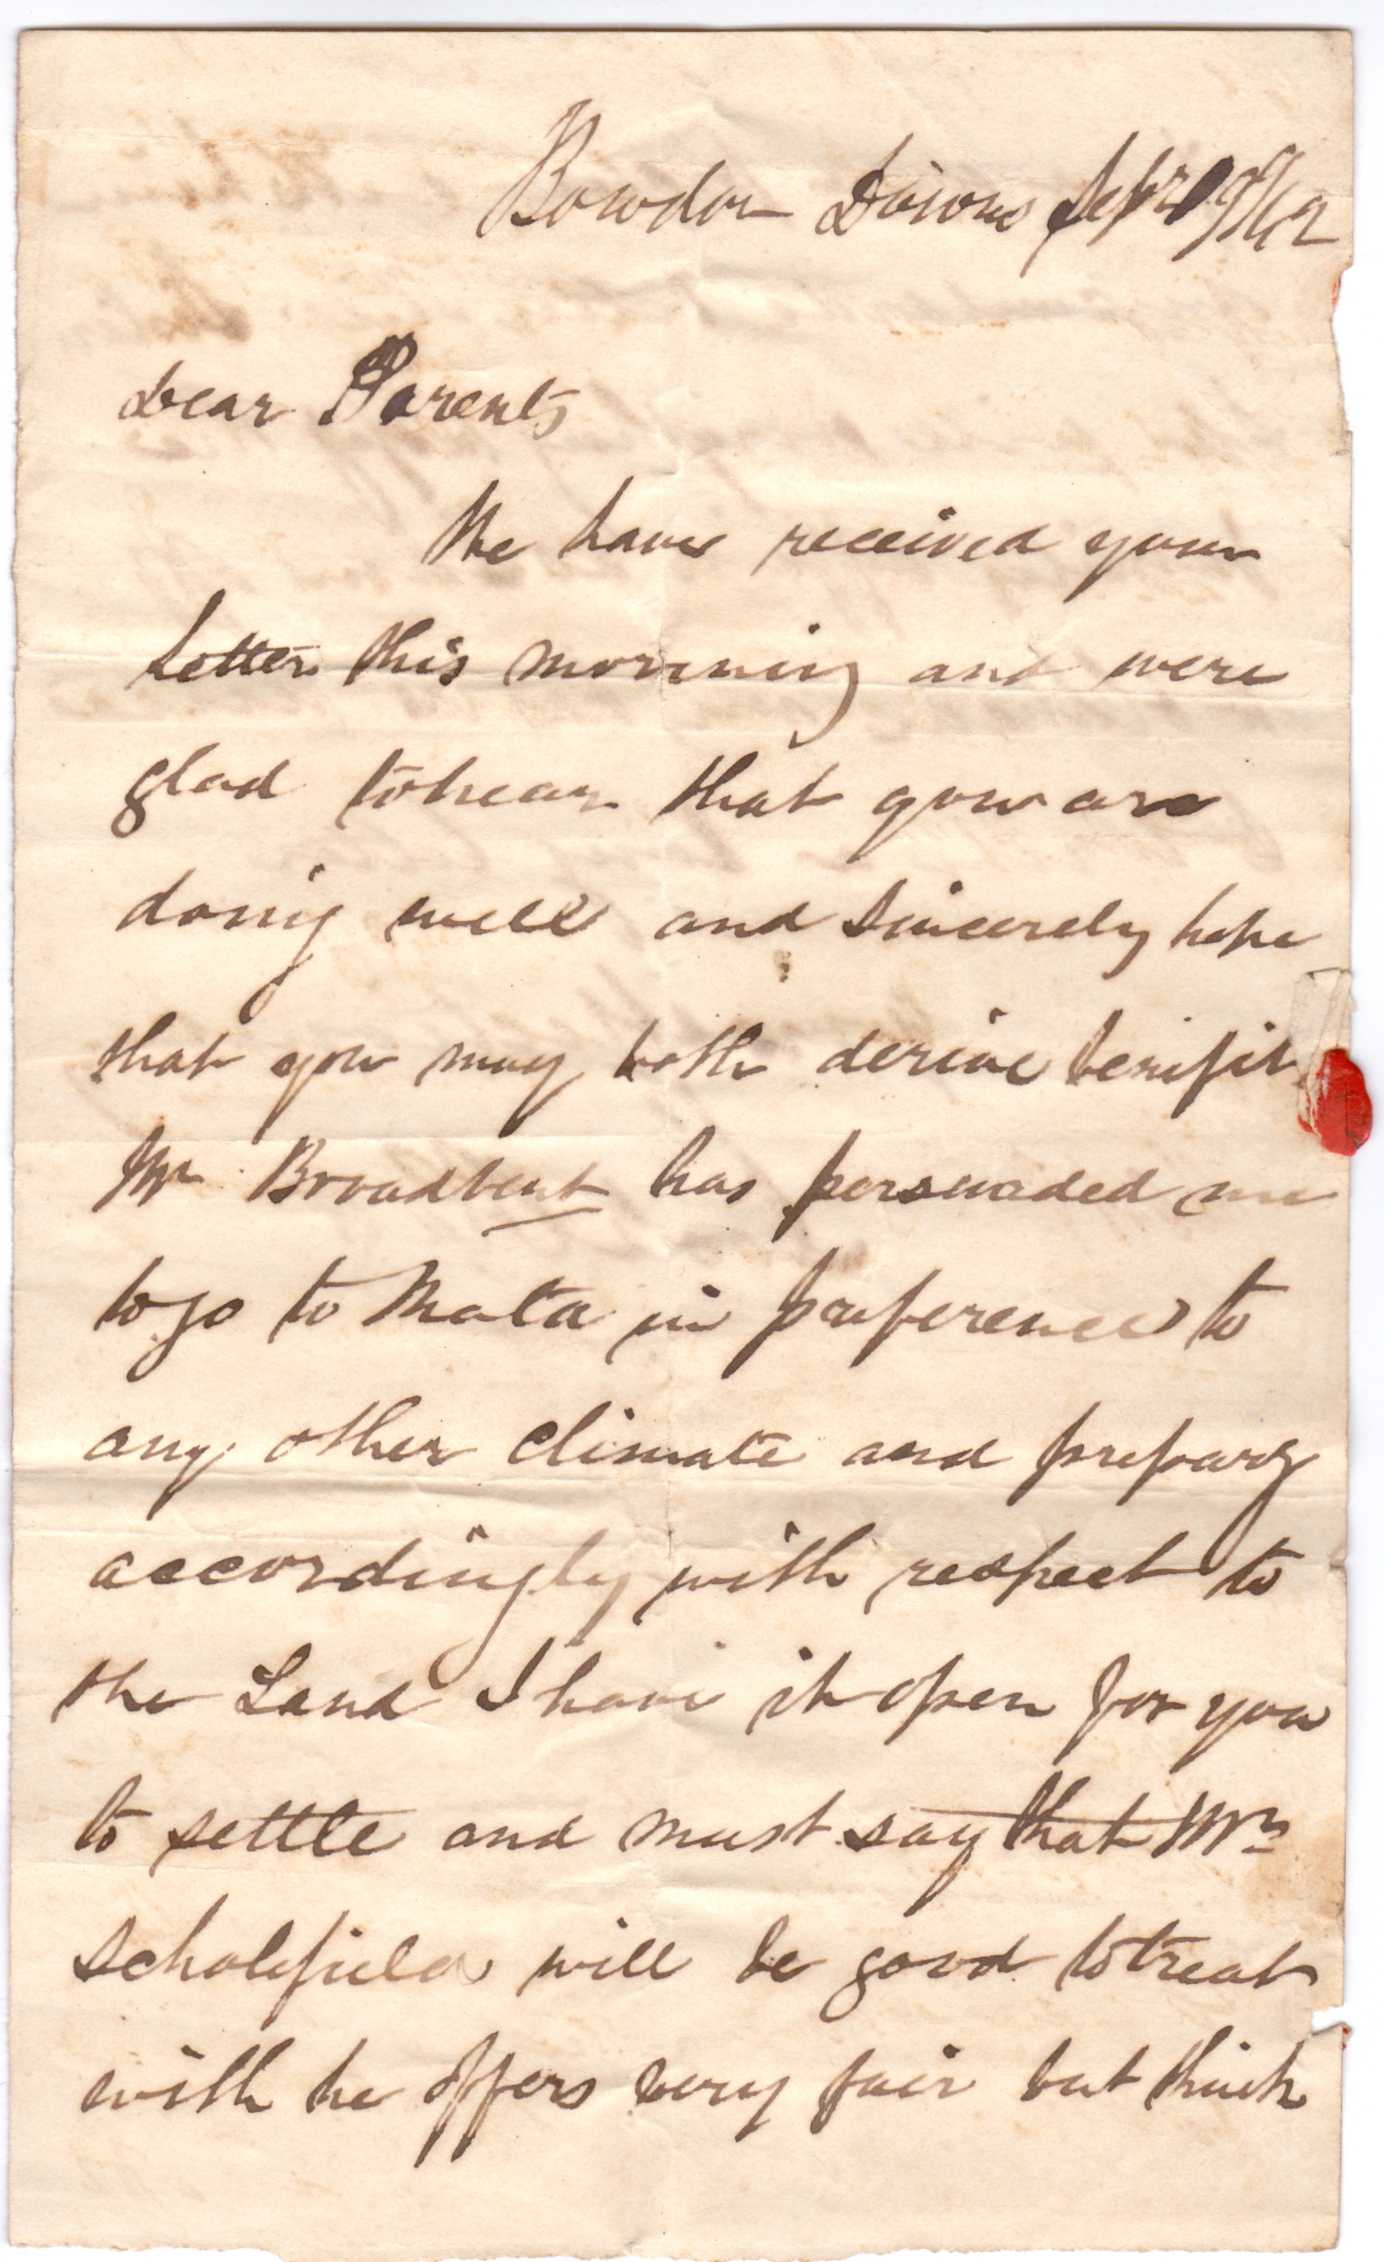 Bowdon Downs Sepr 19/62
Dear Parents
We have received your
Letter this morning and were
glad to hear that you are
doing well and sincerely hope
that you may both derive benifit
Mr Broadbent has persuaded me
to go to Malta in preference to
any other climate and prepary
accordingly with respect to
the Land I have it open for you
to settle and must say that Mr
Scholefield will be good to treat
with he offers very fair but think